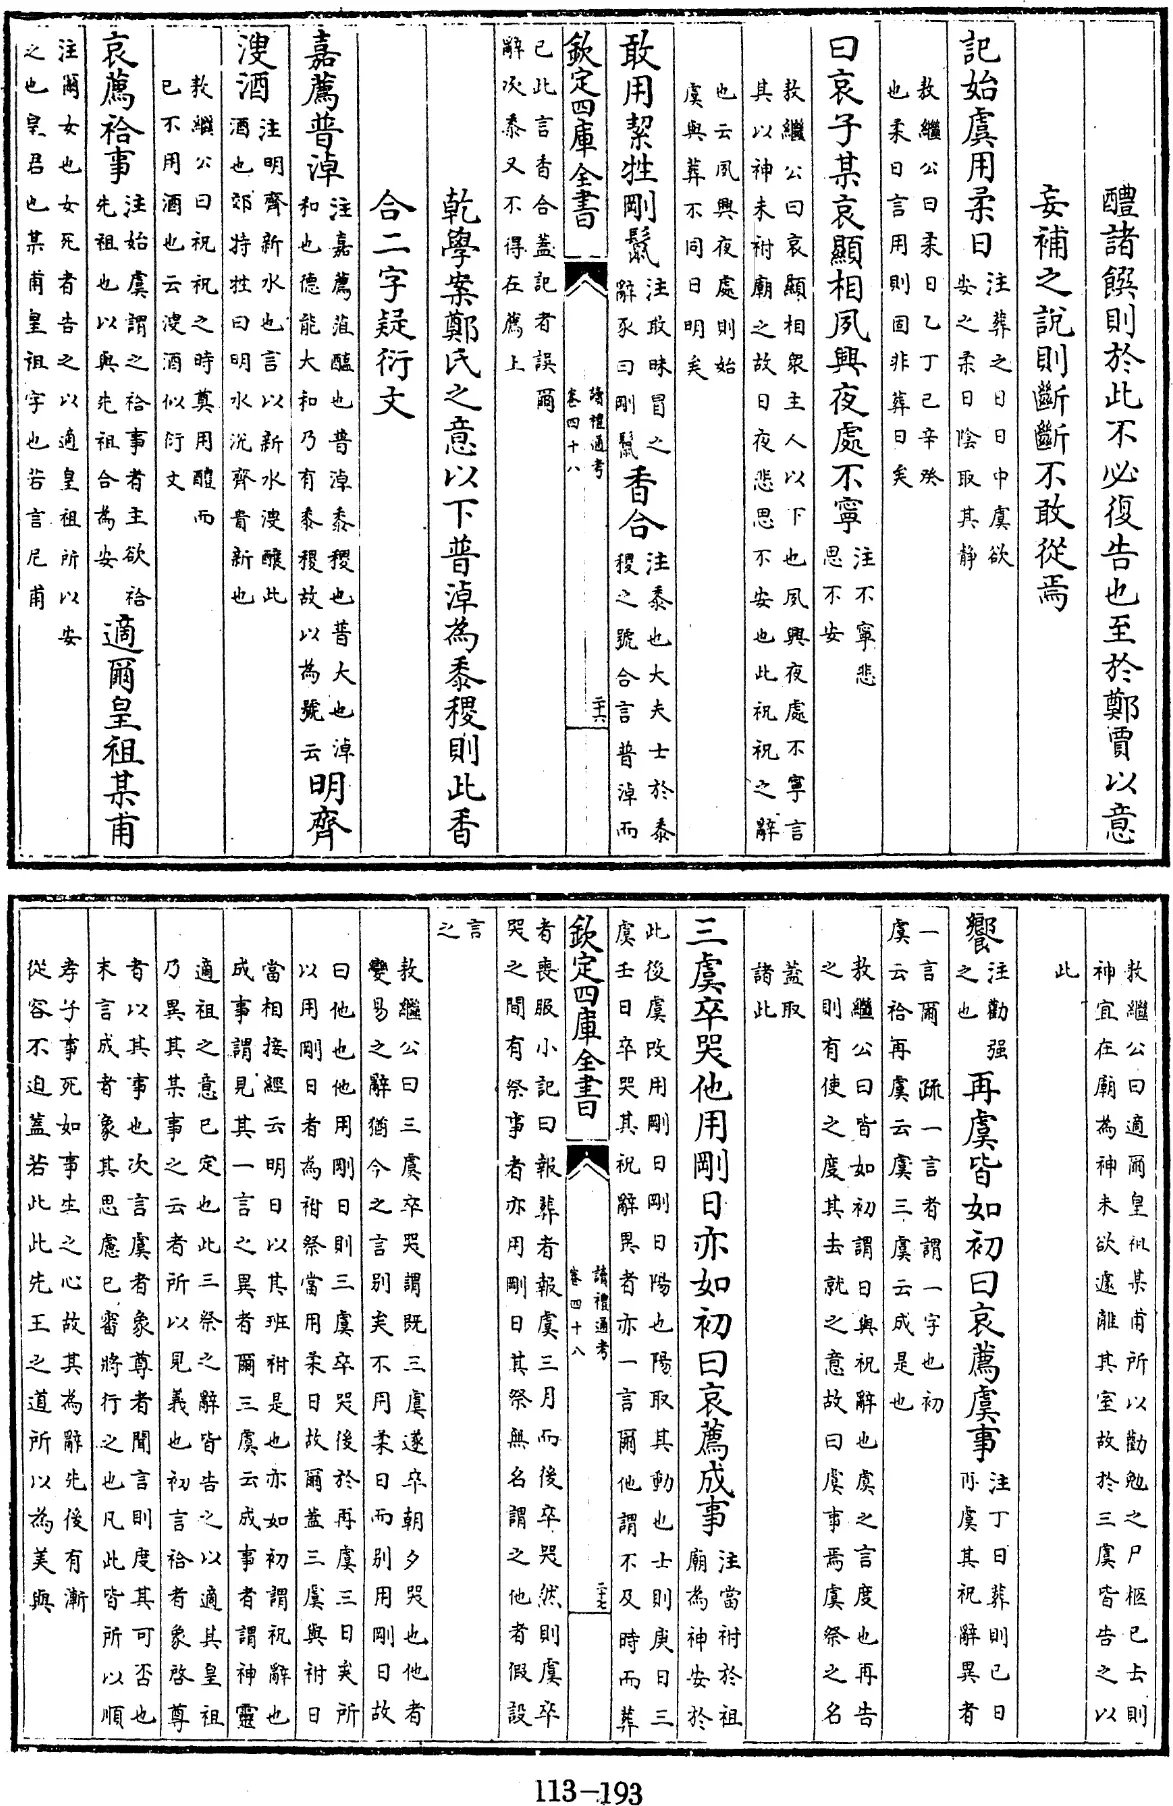 醴諸饌則於此不必復告也至於鄭賈以意
妄補之說則斷斷不敢從焉
記始虞用柔日注葬之日日中虞欲
安之柔日陰取其静
敖繼公曰柔日乙丁己辛癸
也柔日言用則固非葬日矣
曰哀子某哀顯相夙興夜處不寧注不寧悲
思不安
敖繼公曰哀顯相衆主人以下也夙興夜處不寧言
其以神未祔廟之故日夜悲思不安也此祝祝之辭
也云夙興夜處則始
虞與葬不同日明矣
敢用絜牲剛鬣注敢昧冒之
辭豕曰剛鬣香合注黍也大夫士於黍
稷之號合言普淖而
欽定四庫全書
讀禮通考
卷四十八
二十六
已此言香合蓋記者誤爾
辭次黍又不得在薦上
乾學案鄭氏之意以下普淖為黍稷則此香
合二字疑衍文
嘉薦普淖注嘉薦菹醢也普淖黍稷也普大也淖
和也德能大和乃有黍稷故以為號云明齊
溲酒注明齊新水也言以新水溲釀此
酒也郊特牲曰明水涚齊貴新也
敖繼公曰祝祝之時奠用醴而
已不用酒也云溲酒似衍文
哀薦祫事注始虞謂之祫事者主欲祫
先祖也以與先祖合為安適爾皇祖某甫
注爾女也女死者告之以適皇祖所以安
之也皇君也某甫皇祖字也若言尼甫
敖繼公曰適爾皇祖某甫所以勸勉之尸柩已去則
神宜在廟為神未欲遽離其室故於三虞皆告之以
此
饗注勸强
之也再虞皆如初曰哀薦虞事注丁日葬則己日
再虞其祝辭異者
一言爾 疏一言者謂一字也初
虞云祫再虞云虞三虞云成是也
敖繼公曰皆如初謂日與祝辭也虞之言度也再告
之則有使之度其去就之意故曰虞事焉虞祭之名
蓋取
諸此
三虞卒哭他用剛日亦如初曰哀薦成事注當祔於祖
廟為神安於
此後虞改用剛日剛日陽也陽取其動也士則庚日三
虞壬日卒哭其祝辭異者亦一言爾他謂不及時而葬
欽定四庫全書
讀禮通考
卷四十八
二十七
者喪服小記曰報葬者報虞三月而後卒哭然則虞卒
哭之間有祭事者亦用剛日其祭無名謂之他者假設
言
之
敖繼公曰三虞卒哭謂既三虞遂卒朝夕哭也他者
變易之辭猶今之言别矣不用柔日而别用剛日故
曰他也他用剛日則三虞卒哭後於再虞三日矣所
以用剛日者為祔祭當用柔日故爾蓋三虞與祔日
當相接經云明日以其班祔是也亦如初謂祝辭也
成事謂見其一言之異者爾三虞云成事者謂神靈
適祖之意已定也此三祭之辭皆告之以適其皇祖
乃異其某事之云者所以見義也初言祫者象啓尊
者以其事也次言虞者象尊者聞言則度其可否也
末言成者象其思慮已審將行之也凡此皆所以順
孝子事死如事生之心故其為辭先後有漸
從容不迫蓋若此此先王之道所以為美與
113-193